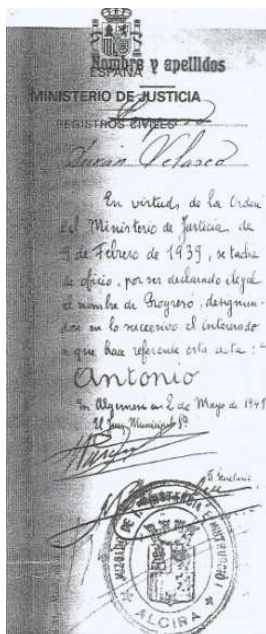 Nombre y apellidos
ESPAÑA
MINISTERIO DE JUSTICIA
REGISTROS CIVILES
Durán Velasco
En virtud de la Orden
del Ministerio de Justicia de
de Febrero de 1939, se tacha
de oficio, por ser declarado ilegal
el nombre de Progreso, designan-
dose en lo sucesivo el interesado
a que hace referencia esta acta:
Antonio
En Algemesí a 2 de Mayo de 1941
El Juez Municipal
El Secretario
JUZGADO DE INSTANCIA E INSTRUCCIÓ
ALCIRA